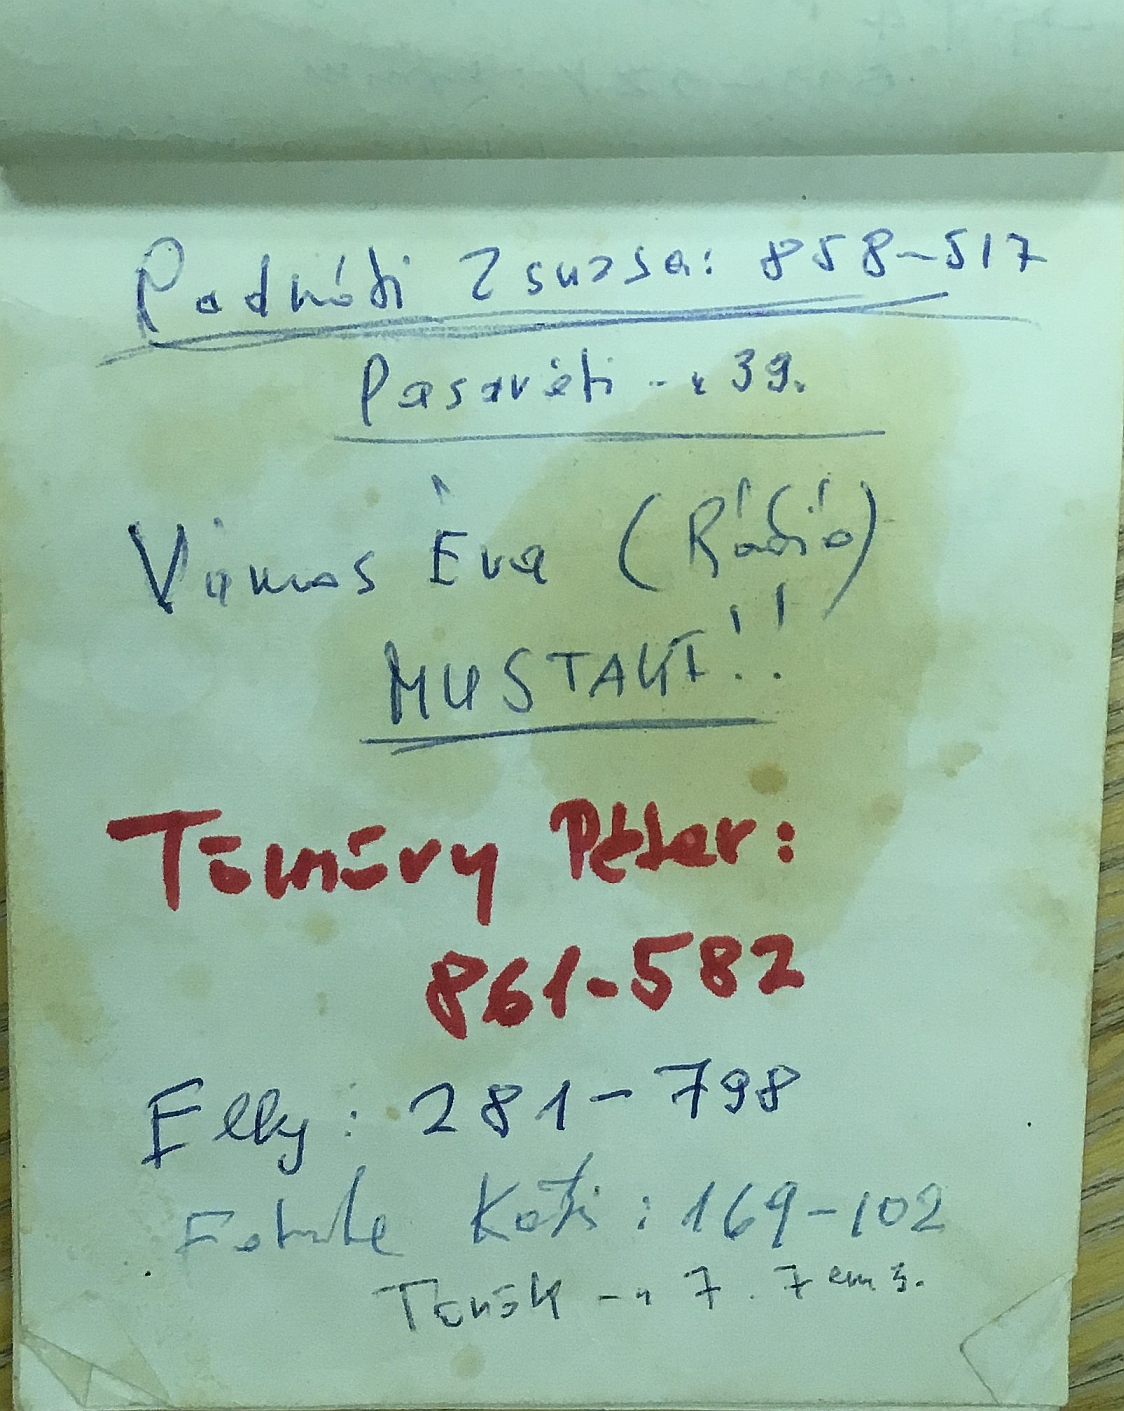 Radnóti Zsuzsa: 858-517
Pasaréti -u 39.
Vámos Éva (Rádió)
MUSTAKI!!
Tömöry Péter:
861-582
Elly: 281-798
Kati: 169-102
Török -u 7. 7em 3.